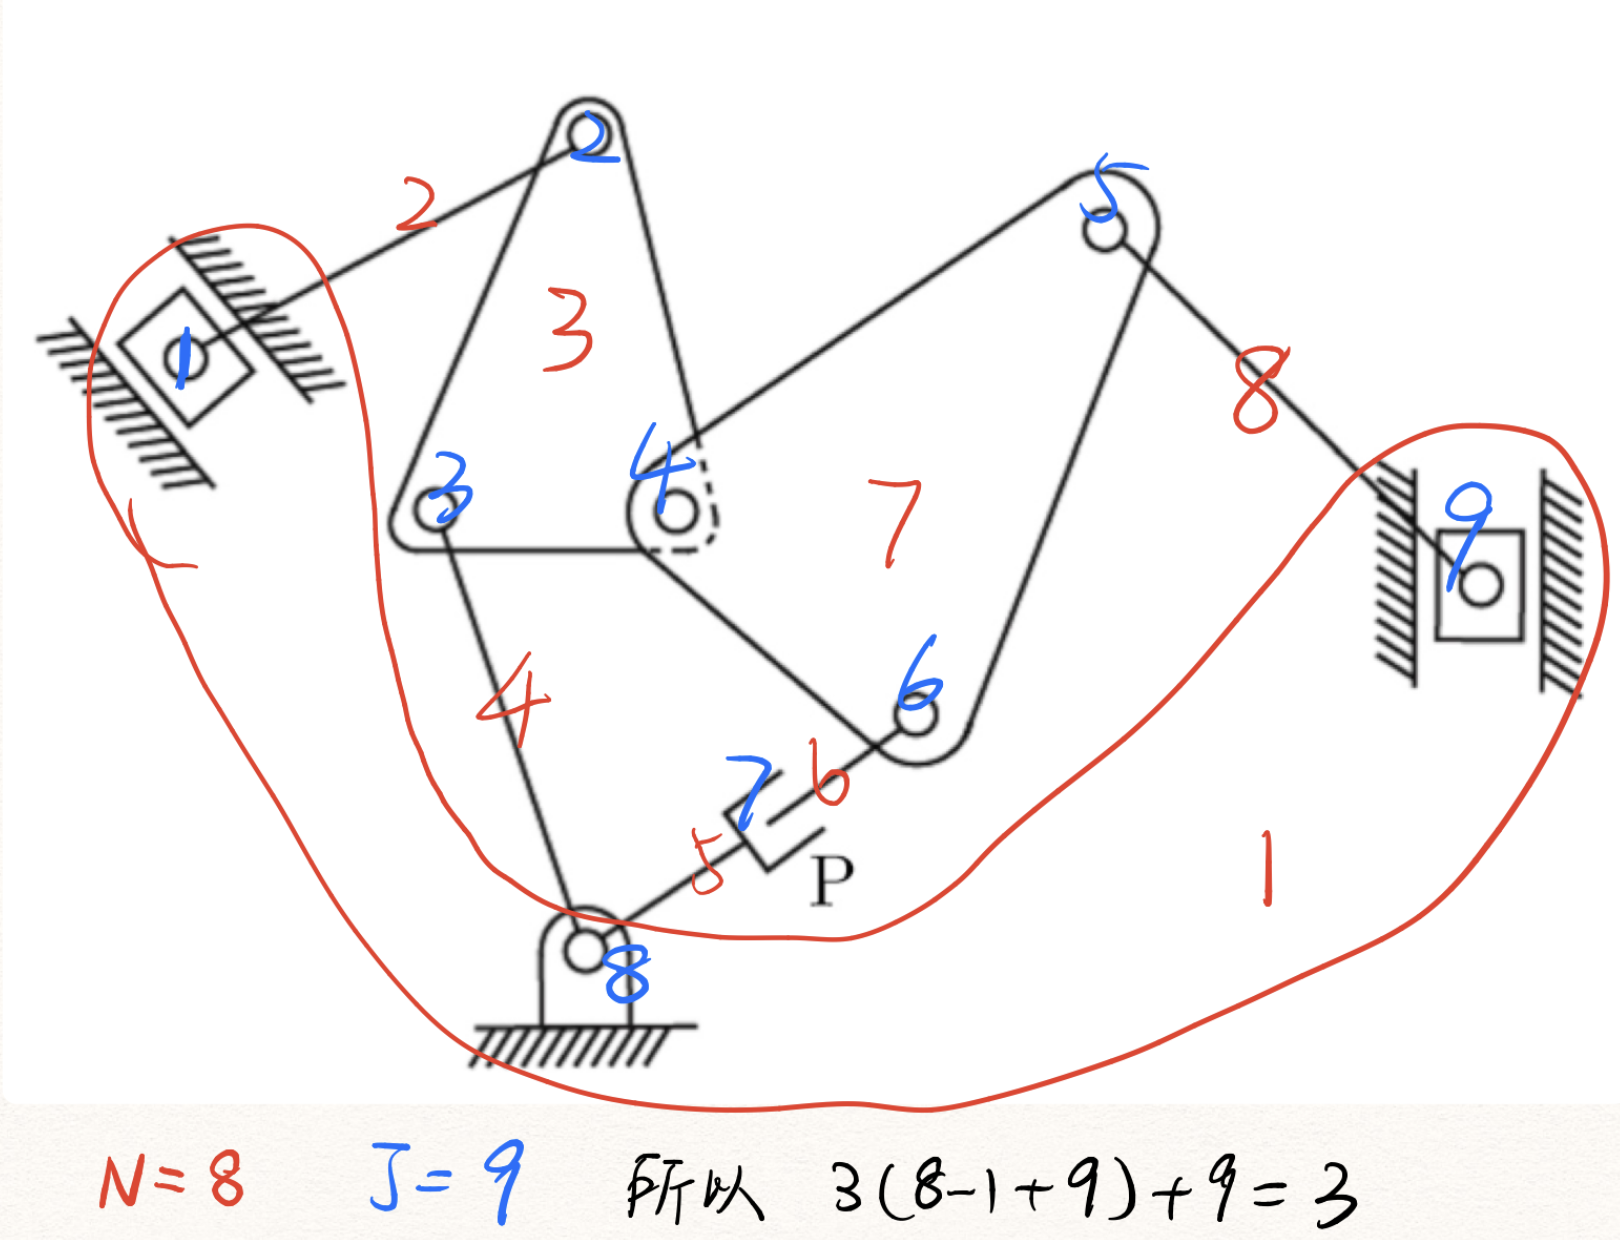 2
5
2
3
1
8
3
4
7
9
6
4
7
6
5
P
1
8
N=8 J=9 所以 3(8-1+9)+9=3